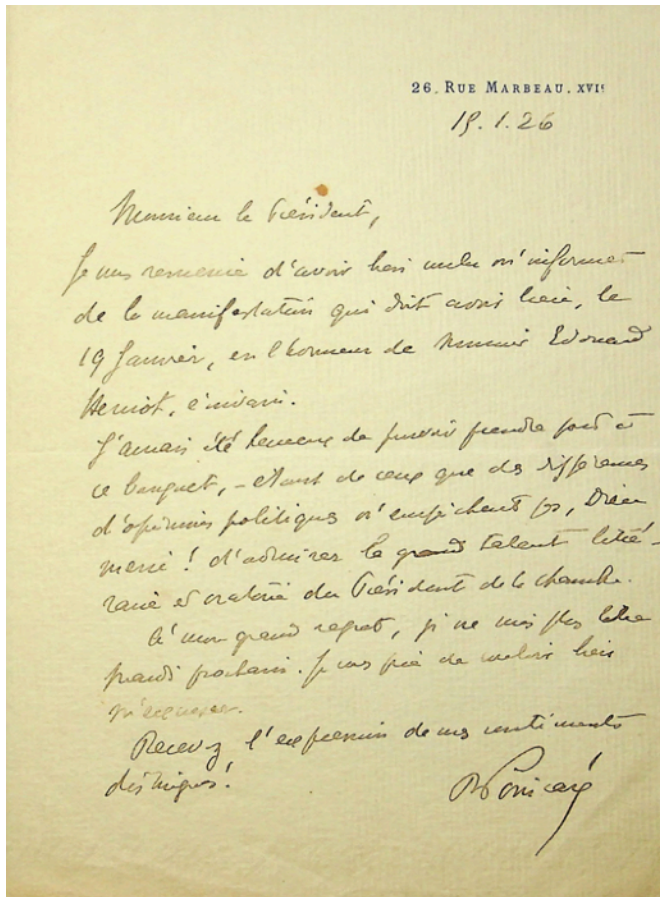 26. RUE MARBEAU. XVIe
15.1.26
Monsieur le Président,
Je vous remercie d'avoir bien voulu m'informer
de la manifestation qui doit avoir lieu, le
19 Janvier, en l'honneur de Monsieur Edouard
Herriot, écrivain.
J'aurais été heureux de pouvoir prendre part à
ce banquet, - étant de ceux que des différences
d'opinions politiques n'empêchent pas, Dieu
merci ! d'admirer le grand talent litté-
raire et oratoire du Président de la Chambre.
A mon grand regret, je ne suis plus libre
mardi prochain. Je vous prie de vouloir bien
m'excuser.
Recevez l'expression de mes sentiments
distingués!
RPoincaré